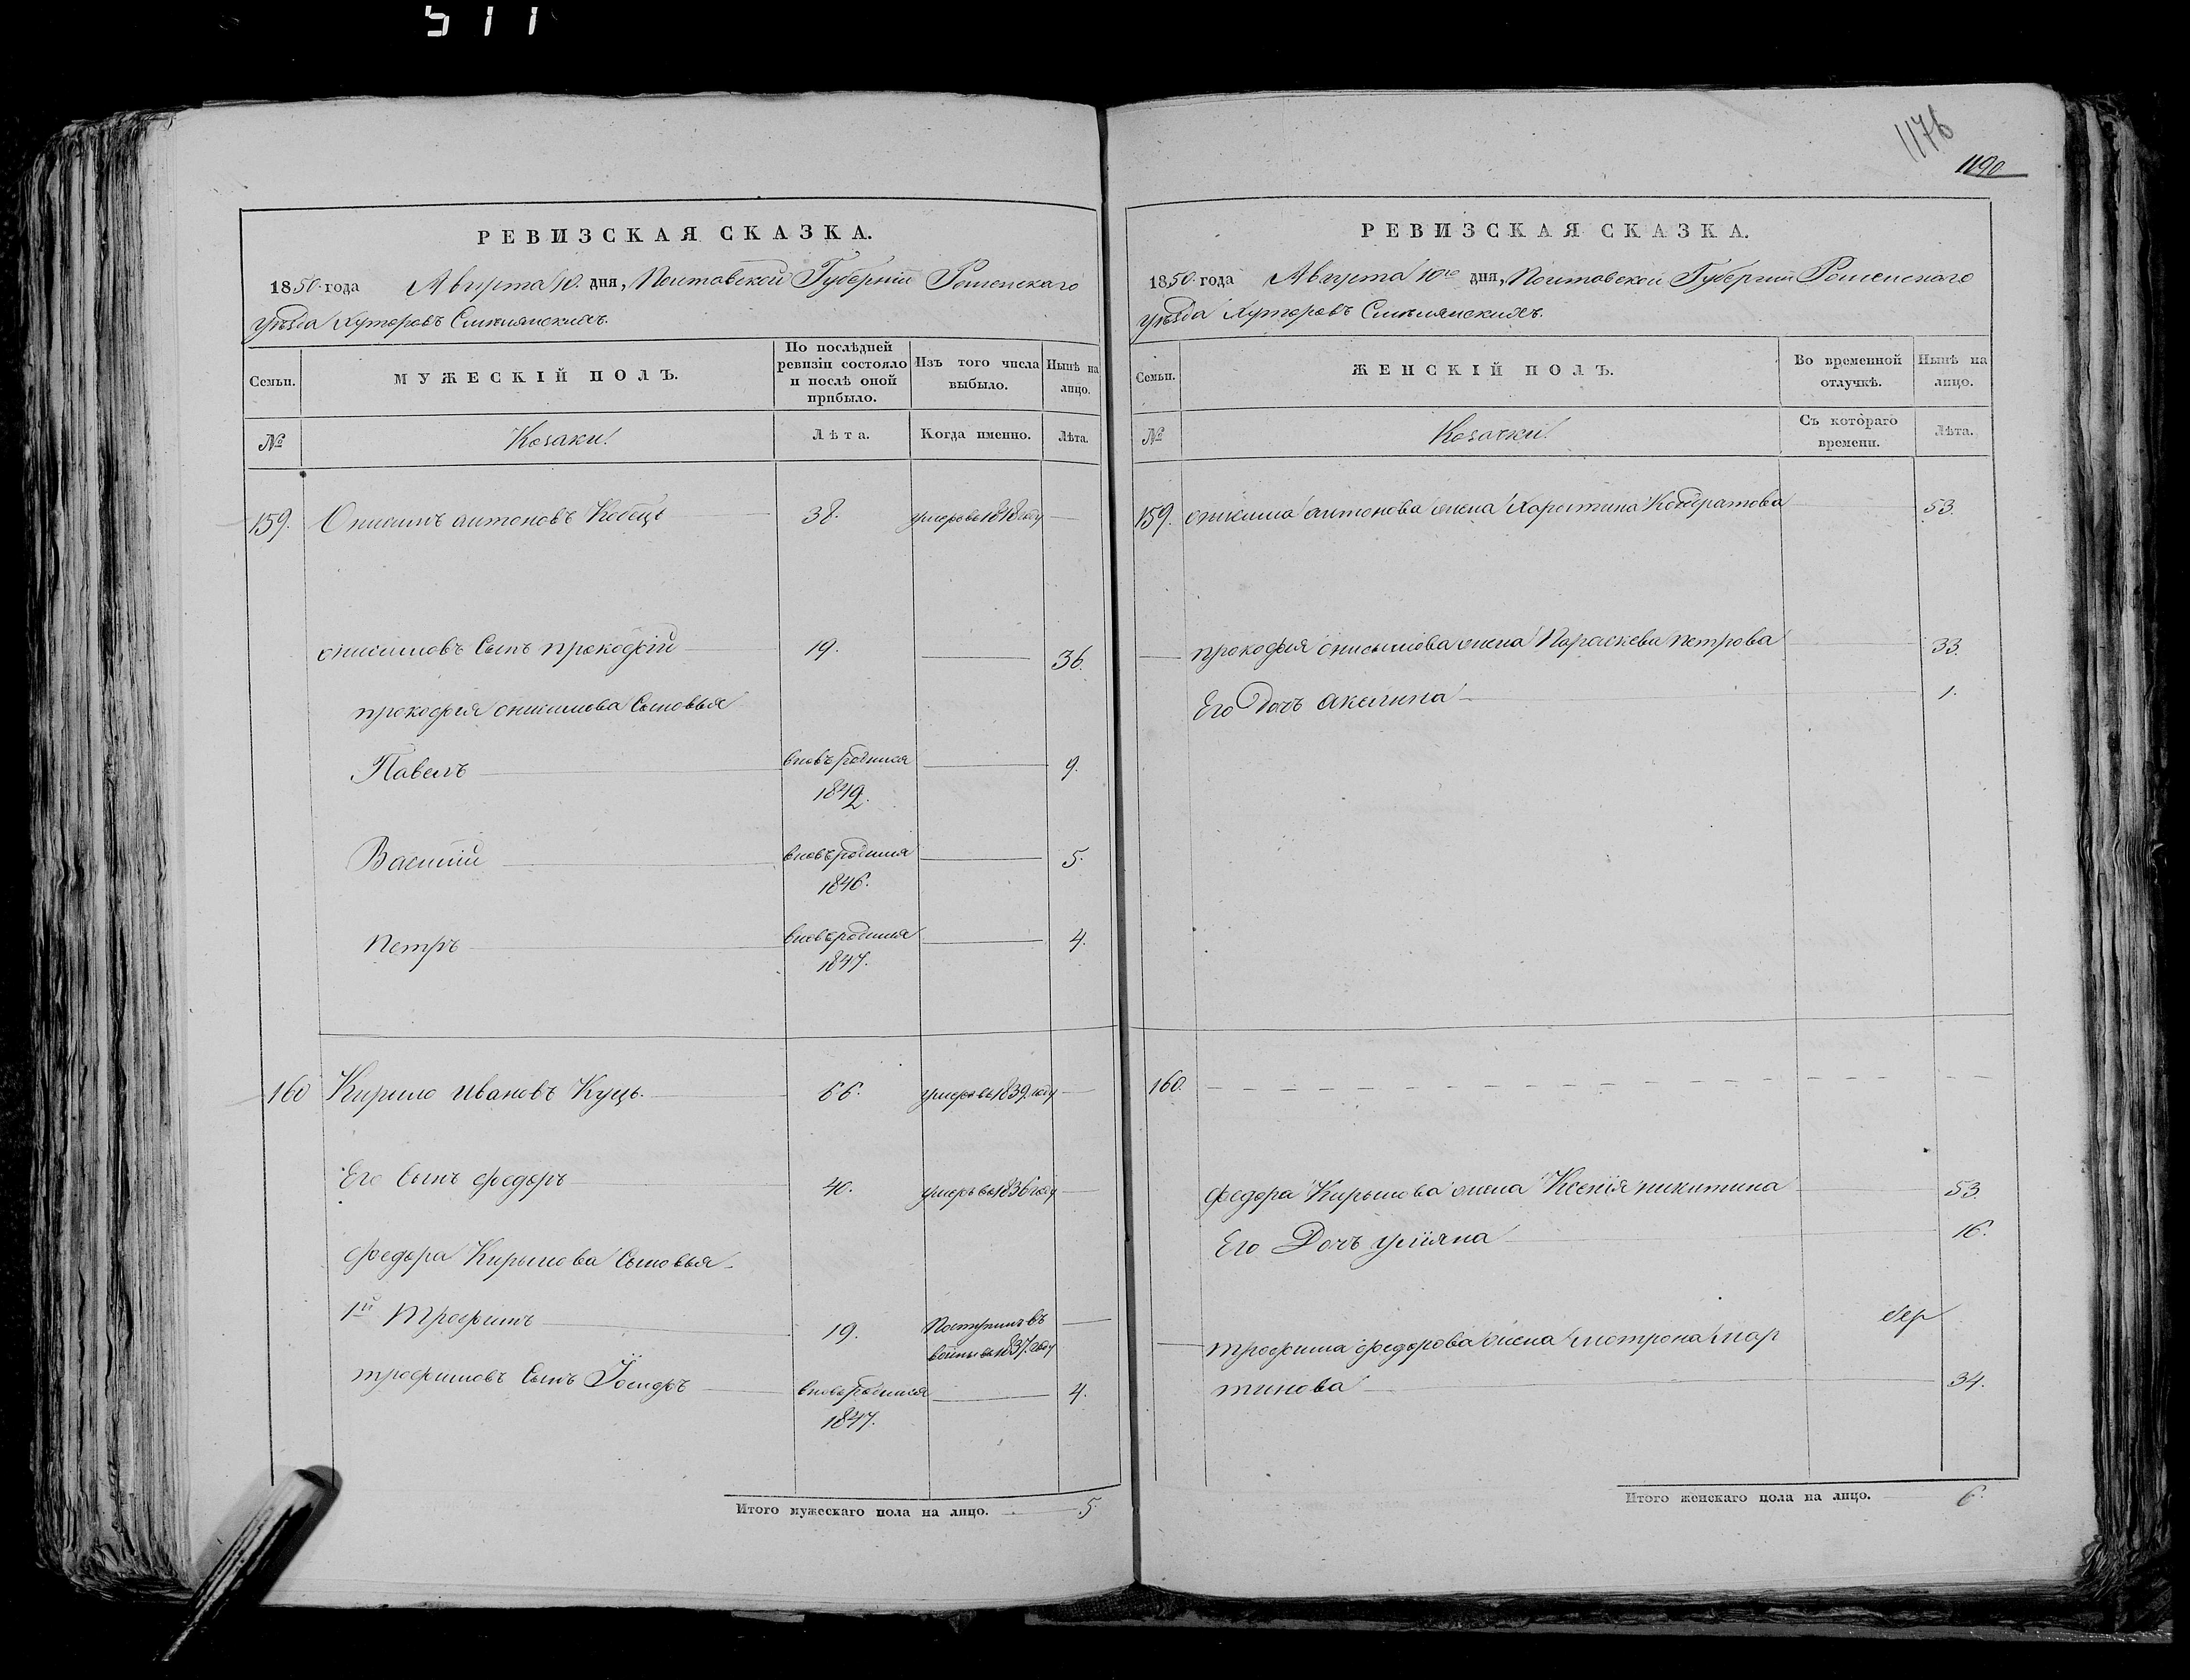 511
РЕВИЗСКАЯ СКАЗКА.
1850 года Августа 10. дня, Полтавской Губернiи Роменскаго
уѣзда Хуторовъ
Семьи. МУЖЕСКIЙ ПОЛЪ. По послѣдней ревизiи состояло и послѣ оной прибыло. Изъ того числа выбыло. Нынѣ на лицо.
№ Козаки. Лѣта. Когда именно. Лѣта.
159. Онисимъ антоновъ Кобець 38. умеръ въ 1818 году
онисимовъ Сынъ прокофiй 19. 36.
прокофiя онисимова Сыновья
Павелъ вновь родился 9.
1842.
Василiй вновь родился 5.
1846.
Петръ вновь родился 4.
1847.
160 Кирило Ивановъ Куць. 66. умеръ въ 1839 году
Его Сынъ федоръ 40. умеръ въ 1836 году
федора Кирилова Сыновья
1й Трофимъ 19. Поступилъ въ
войны въ 1837. году
трофимовъ Сынъ Iосифъ вновь родился 4.
1847.
Итого мужескаго пола на лицо. 5.
1176
1190
РЕВИЗСКАЯ СКАЗКА.
1850 года Августа 10го дня, Полтавской Губернiи Роменскаго
уѣзда Хуторовъ
Семьи. ЖЕНСКIЙ ПОЛЪ. Во временной отлучкѣ. Нынѣ на лицо.
№ Козачки. Съ котораго времени. Лѣта.
159. онисима антонова жена Харитина Кондратова 53.
прокофiя онисимова жена Параскева петрова 33.
Его дочъ акилина 1.
160.
федора Кирилова жена Ксенiя никитина 53.
Его Дочъ улiяна 16.
трофима федорова жена мотрона мар
тинова 34.
Итого женскаго пола на лицо. 6.